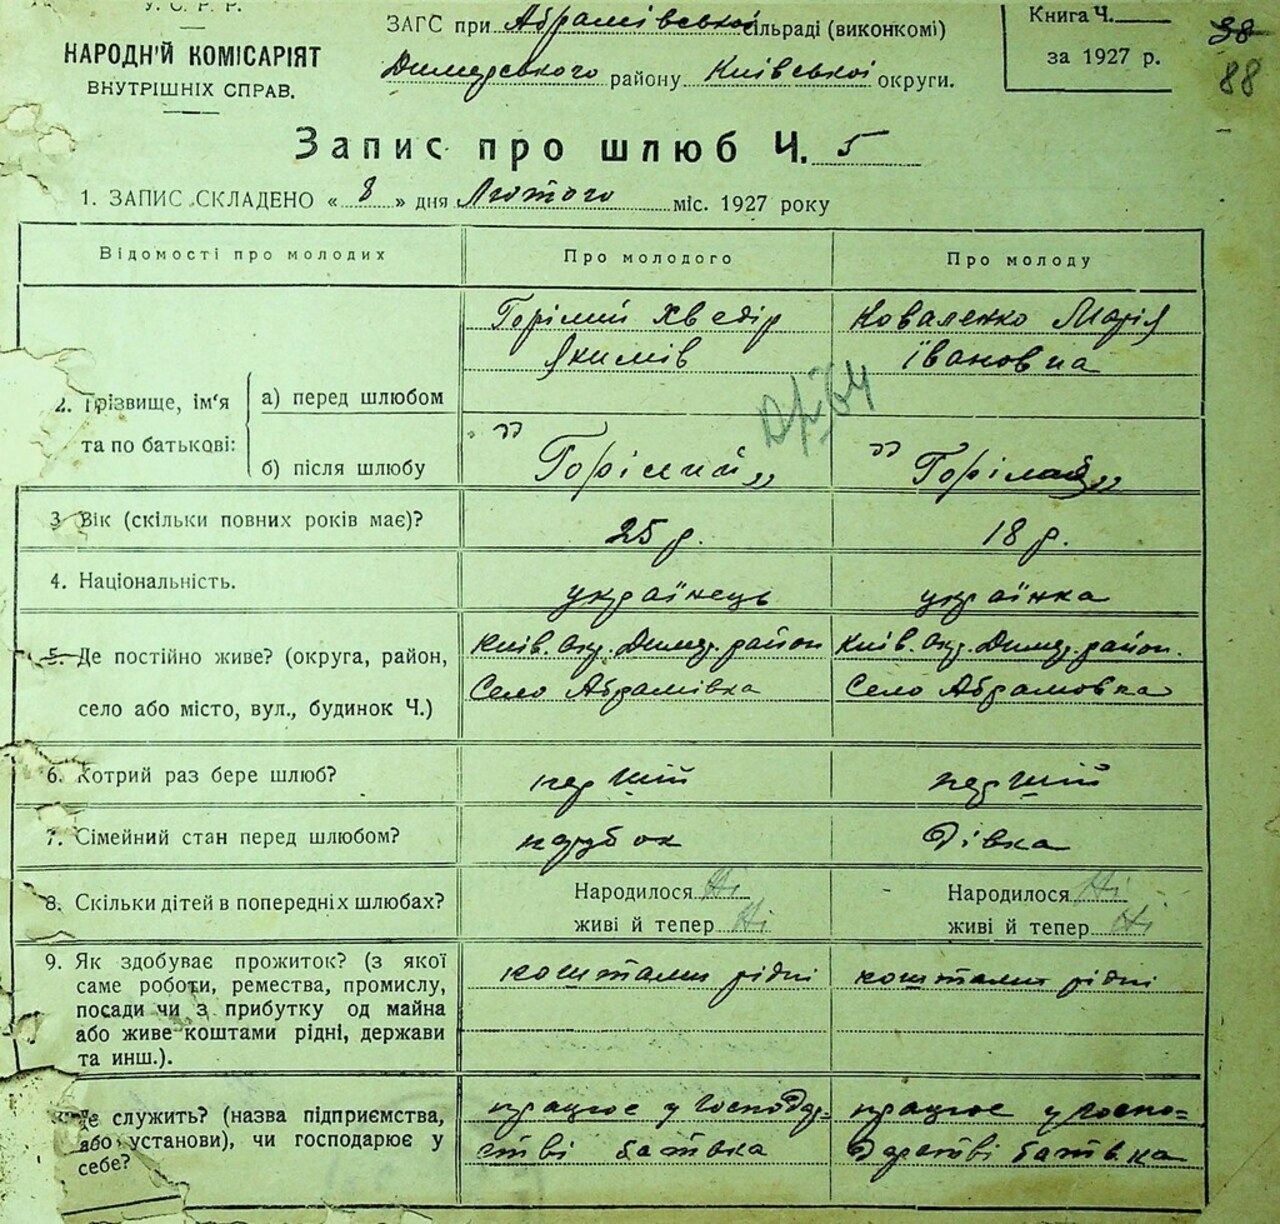 У. С. Р. Р.
НАРОДНІЙ КОМІСАРІЯТ
ВНУТРІШНІХ СПРАВ.
ЗАГС при Абрамівської сільраді (виконкомі)
Димерського району Київської округи.
Книга Ч.
за 1927 р.
38
88
Запис про шлюб Ч. 5
1. ЗАПИС СКЛАДЕНО « 8 » дня Лютого міс. 1927 року
Відомості про молодих
Про молодого
Про молоду
2. Прізвище, ім'я
та по батькові:
а) перед шлюбом
Горілий Хведір
Якимів
Коваленко Марія
Івановна
б) після шлюбу
„Горілий„
„Горілая„
3 Вік (скільки повних років має)?
25 р.
18 р.
4. Національність.
українець
українка
5. Де постійно живе? (округа, район,
село або місто, вул., будинок Ч.)
Київ. Окр. Димер. район
Село Абрамівка
Київ. Окр. Димер. район.
Село Абрамовка
6. Котрий раз бере шлюб?
перший
перший
7. Сімейний стан перед шлюбом?
парубок
Дівка
8. Скільки дітей в попередніх шлюбах?
Народилося Ні
живі й тепер Ні
Народилося Ні
живі й тепер Ні
9. Як здобуває прожиток? (з якої
саме роботи, ремества, промислу,
посади чи з прибутку од майна
або живе коштами рідні, держави
та инш.).
коштами рідні
коштами рідні
Де служить? (назва підприємства,
або установи), чи господарює у
себе?
працює у господар-
стві батька
працює у госпо=
дарстві батька